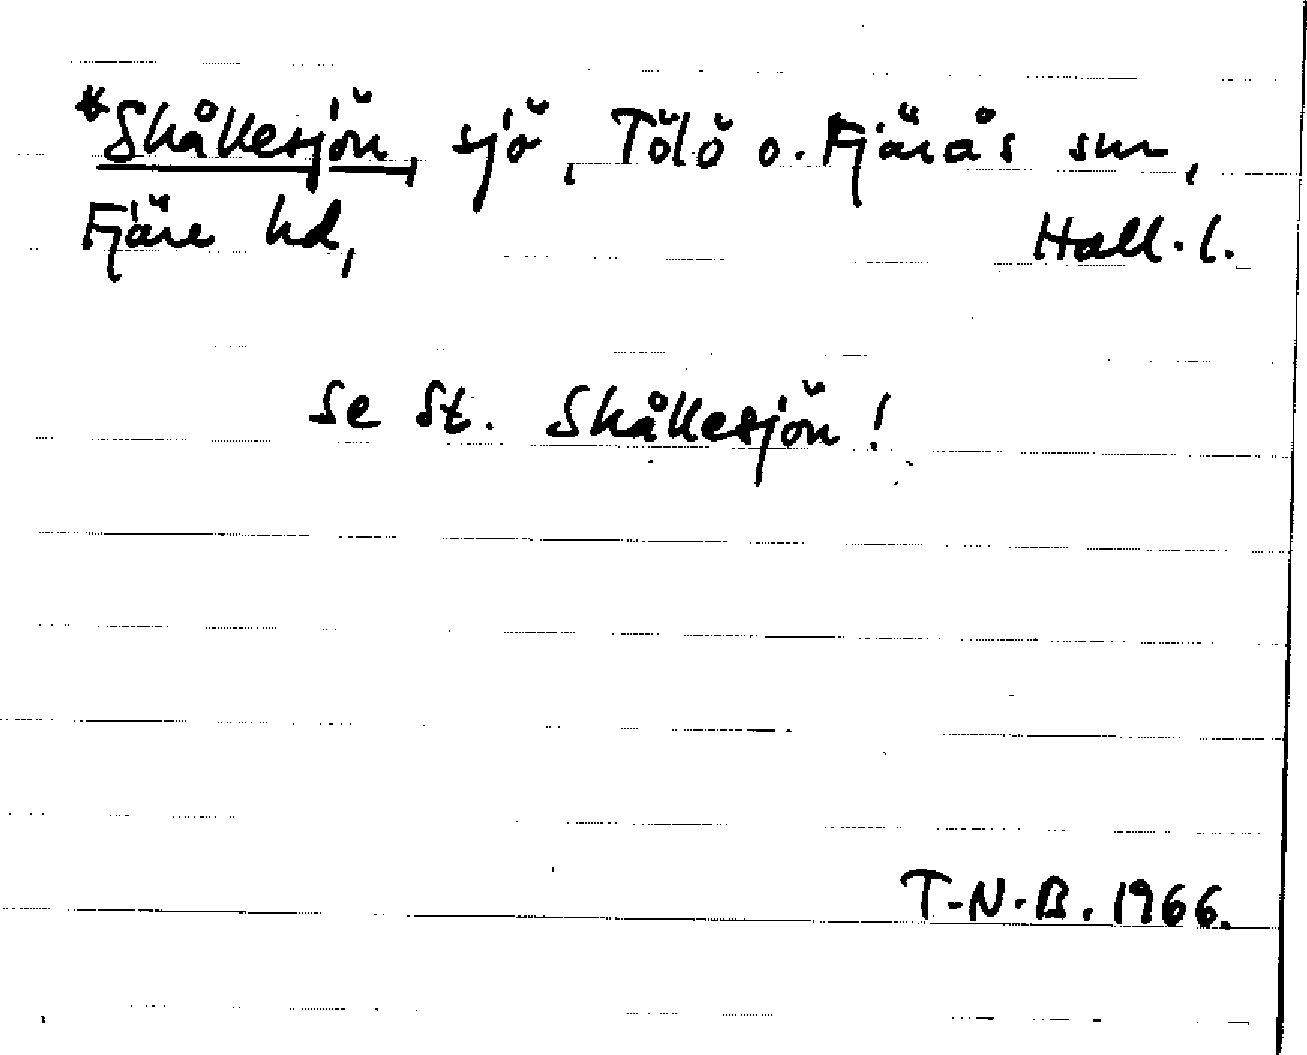 *Skåkesjön, sjö, Tölö o. Fjärås snr,
Fjäre hd, Hall. l.
Se St. Skåkesjön!
T-N-B. 1966.